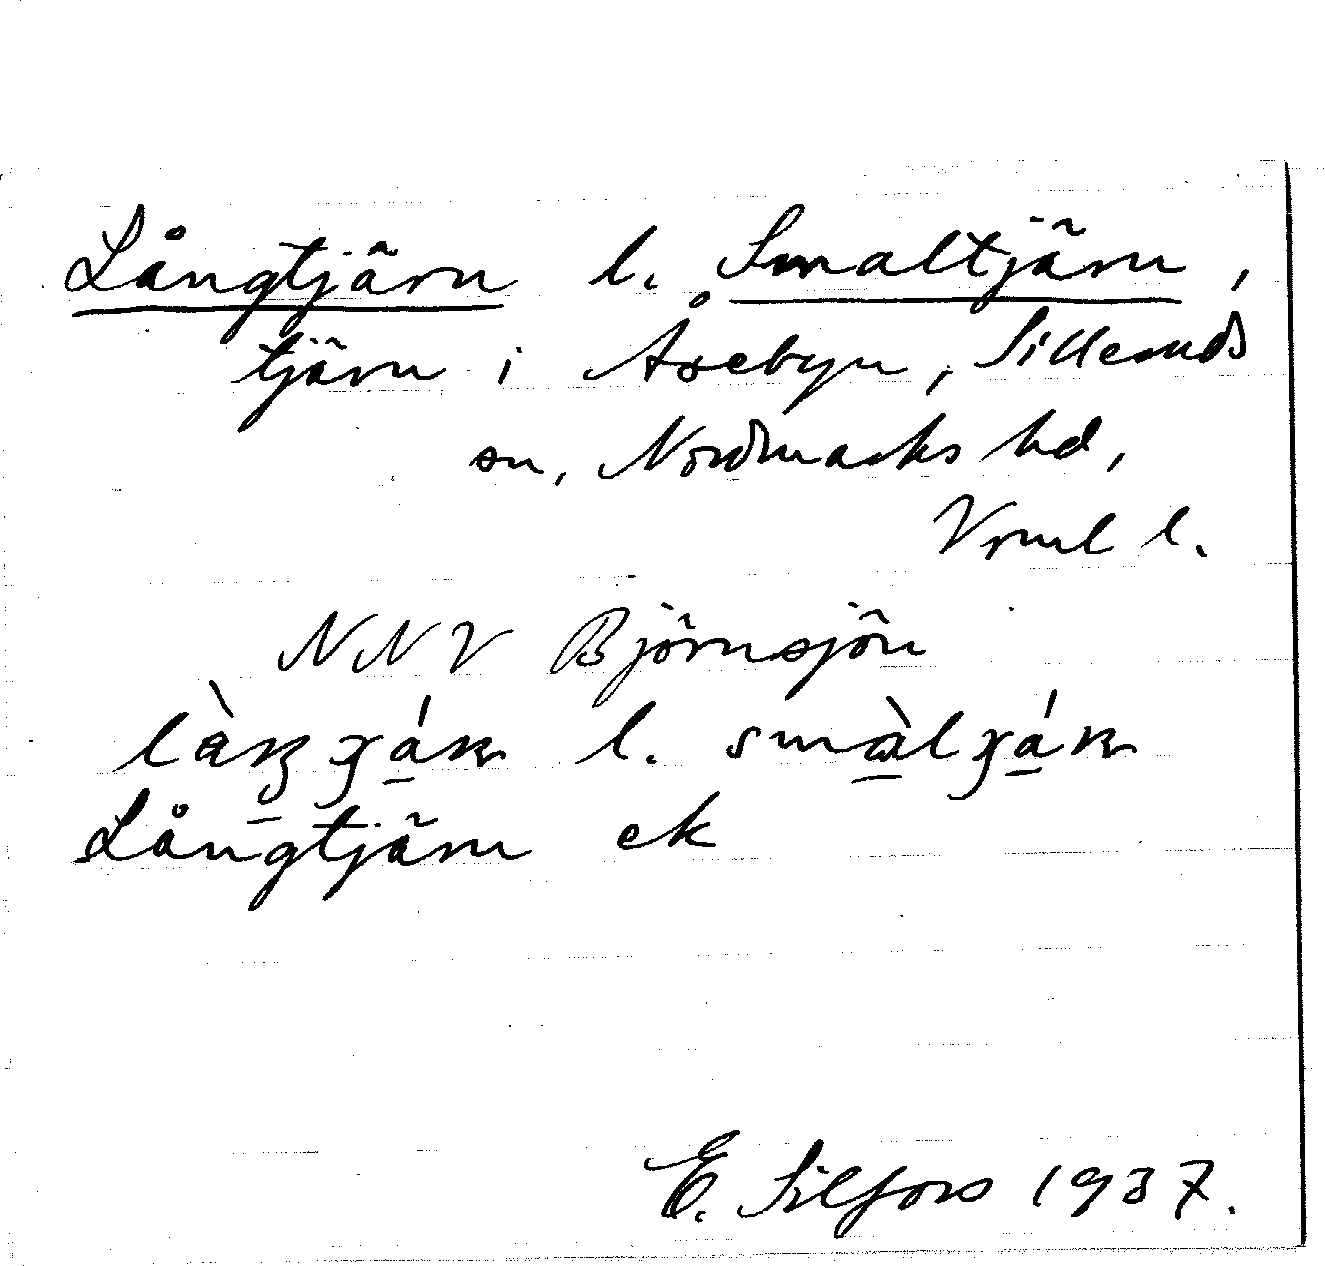 Långtjärn l. Smaltjärn,
tjärn i Årebyn, Sillerud
sn, Nordmarks hd,
Vrml l.
NNV Björnsjön
l. 
Långtjärn ek
E. Silfors 1937.